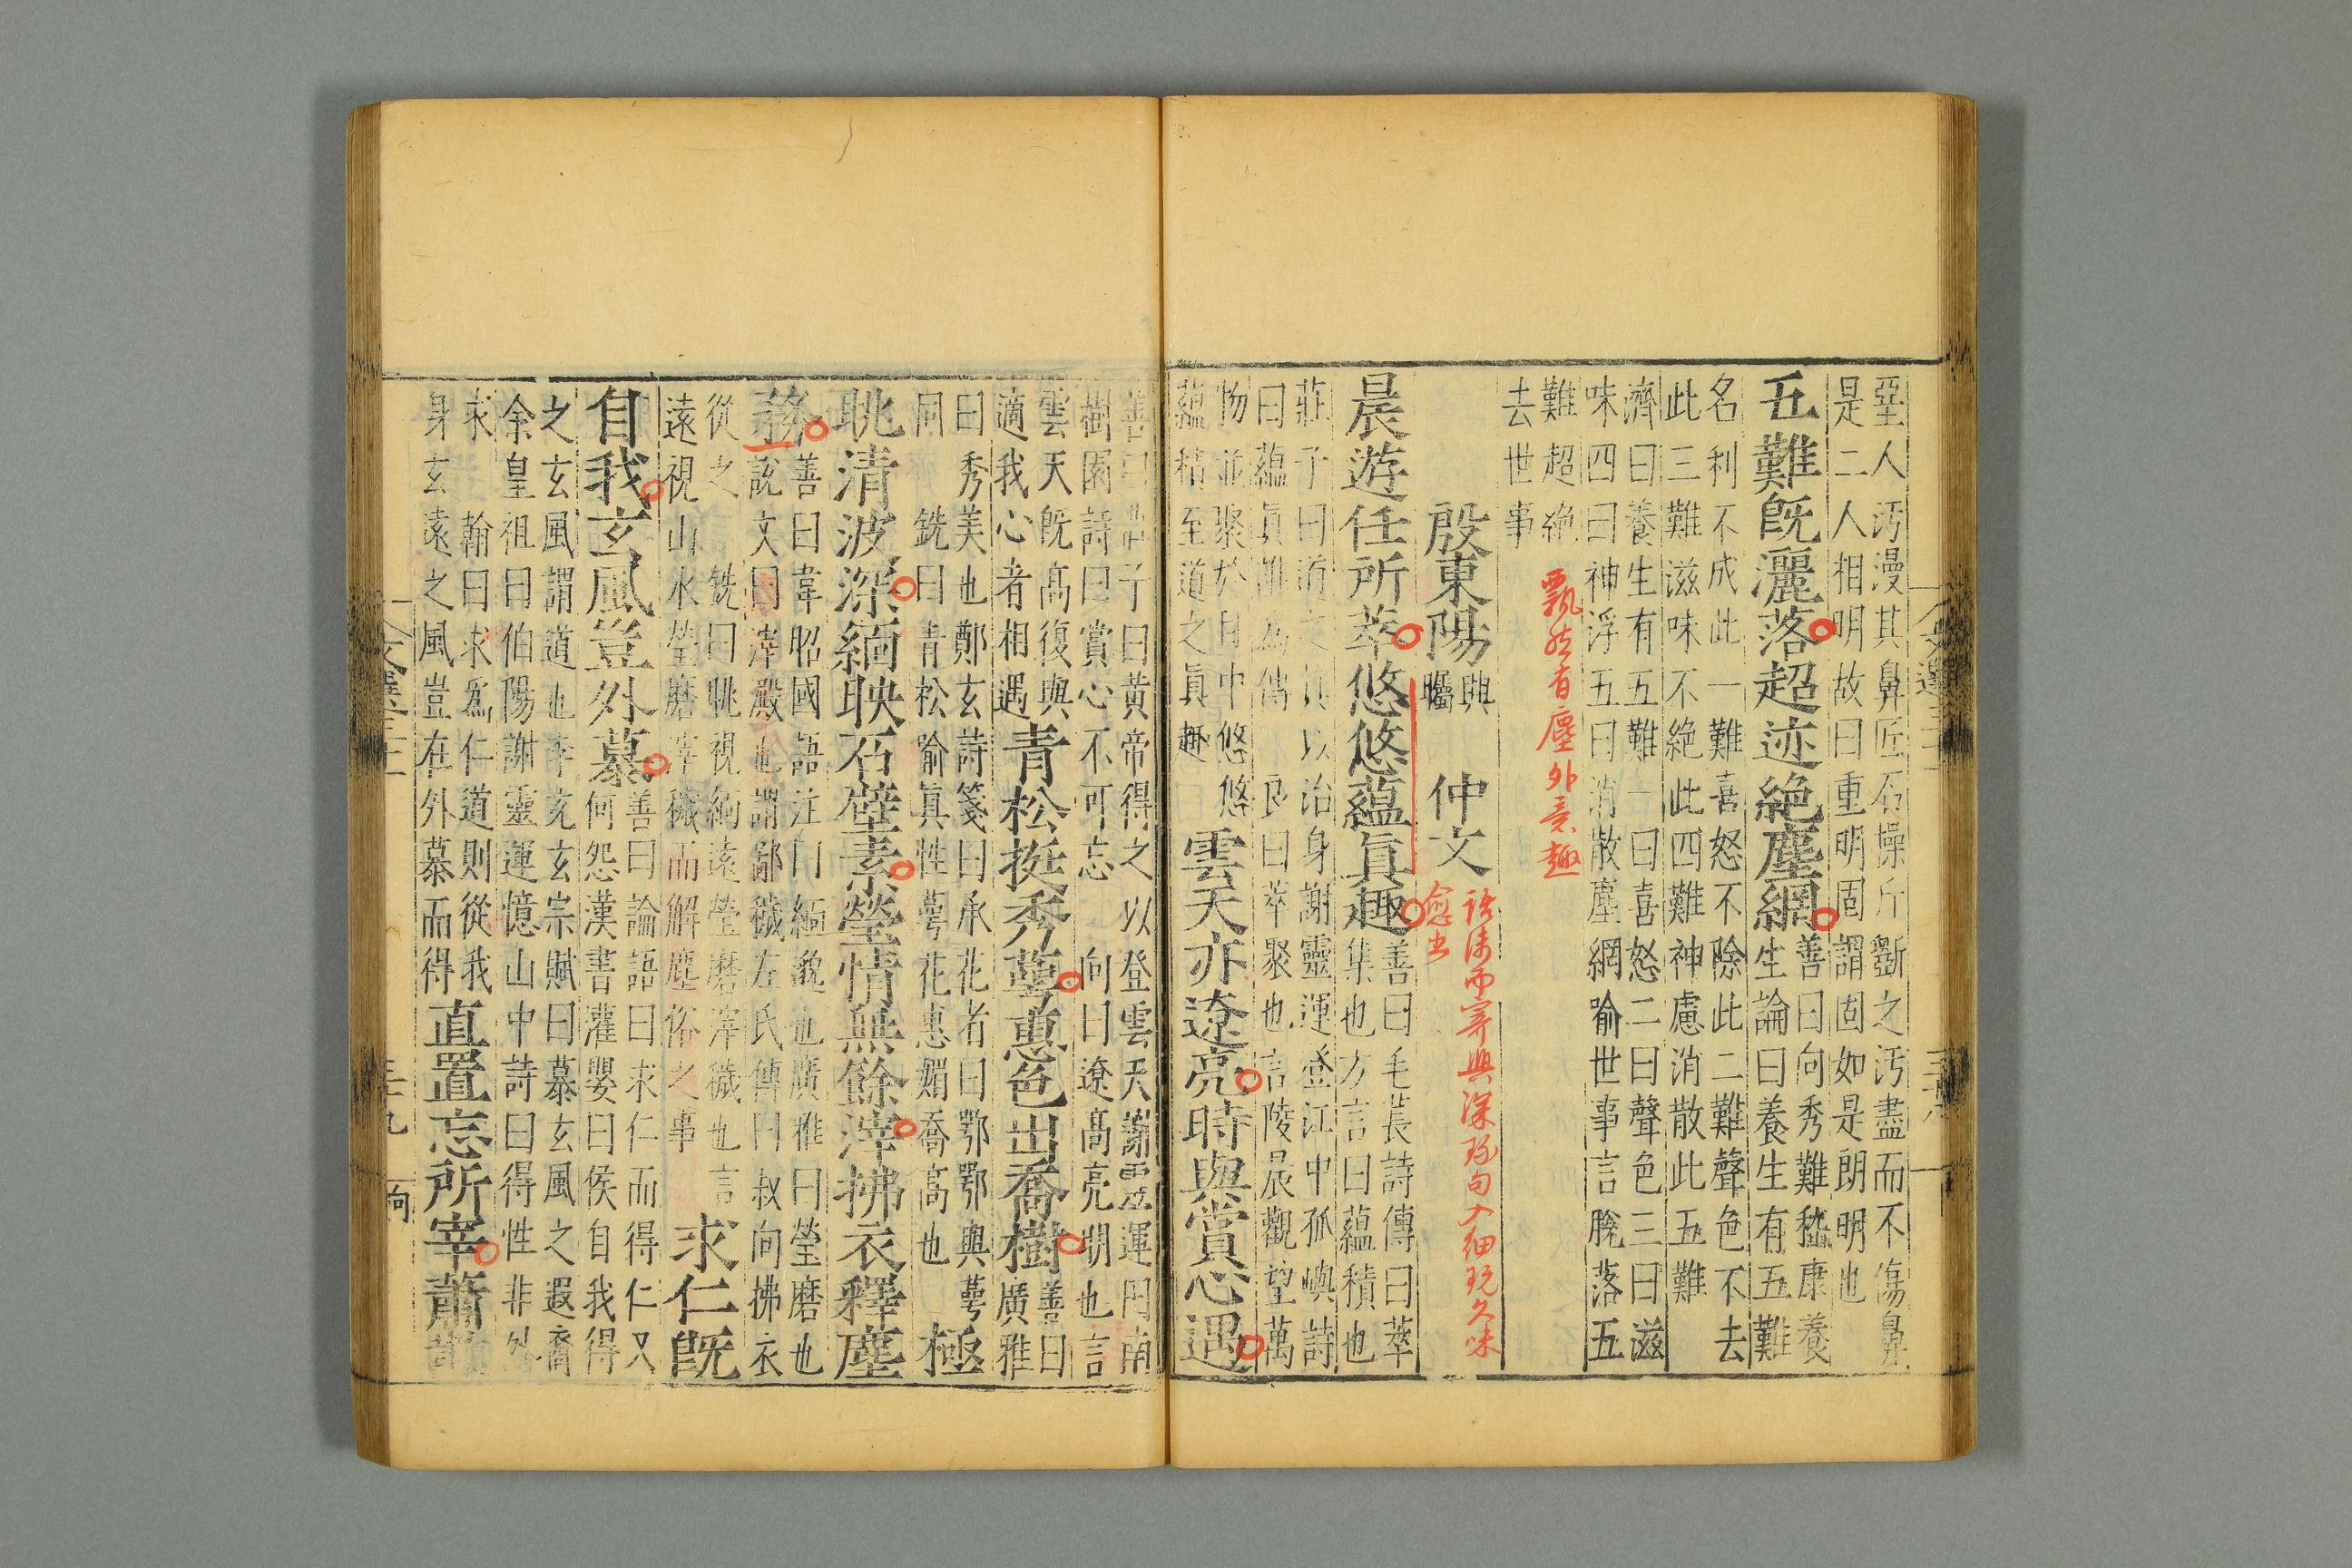 堊人汚漫其鼻匠石操斤斵之汚盡而不傷鼻
是二人相明故曰重明固謂固如是朗明也
五難旣灑落超迹絶塵網
善曰向秀難嵇康養
生論曰養生有五難
名利不成此一難喜怒不除此二難聲色不去
此三難滋味不絶此四難神慮消散此五難
濟曰養生有五難一曰喜怒二曰聲色三曰滋
味四曰神浮五曰消散塵網喻世事言脫落五
難超絶
去世事
飄然有塵外意趣
殷東陽
興
矚
仲文
語淒而寄興深琢句入細玩久味
愈出
晨遊任所萃悠悠蘊眞趣
善曰毛萇詩傳曰萃
集也方言曰蘊積也
莊子曰道之眞以治身謝靈運登江中孤嶼詩
曰蘊眞誰爲傳 良曰萃聚也言陵晨觀望萬
物並聚於目中悠悠
蘊積至道之眞趣
雲天亦遼亮時與賞心遇
善曰莊子曰黃帝得之以登雲天謝靈運田南
樹園詩曰賞心不可忘 向曰遼高亮朗也言
雲天旣高復與
適我心者相遇
青松挺秀萼蕙色出喬樹
善曰
廣雅
曰秀美也鄭玄詩箋曰承花者曰鄂鄂與萼
同 銑曰青松喻眞性萼花惠媚喬高也
極
眺清波深緬映石壁素瑩情無餘滓拂衣釋塵
務
善曰韋昭國語注曰緬邈也廣雅曰瑩磨也
說文曰滓殿也謂鄙穢左氏傳曰叔向拂衣
從之 銑曰眺視緬遠瑩磨滓穢也言
遠視山水瑩磨滓穢而解塵俗之事
求仁旣
自我玄風豈外慕
善曰論語曰求仁而得仁又
何怨漢書灌嬰曰侯自我得
之玄風謂道也李充玄宗賦曰慕玄風之遐裔
余皇祖曰伯陽謝靈運憶山中詩曰得性非外
求 翰曰求爲仁道則從我
身玄遠之風豈在外慕而得
直置忘所宰蕭